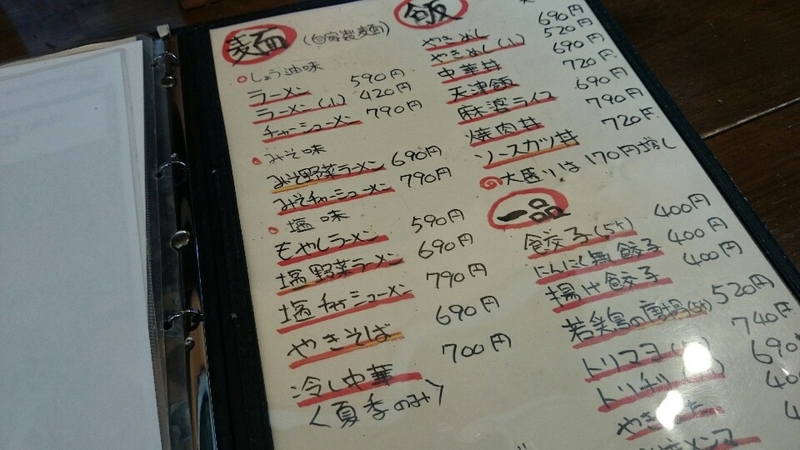 麺 (自家製麺)
しょう油味
ラーメン 590円
ラーメン(小) 420円
チャーシューメン 790円
みそ味
みそ野菜ラーメン 690円
みそチャーシューメン 790円
塩味
もやしラーメン 590円
塩野菜ラーメン 690円
塩チャーシューメン 790円
やきそば 690円
冷し中華 700円
〈夏季のみ〉
飯
やきめし 690円
やきめし(小) 520円
中華丼 690円
天津飯 720円
麻婆ライス 690円
焼肉丼 790円
ソースカツ丼 720円
大盛りは170円増し
一品
餃子(5ケ) 400円
にんにく無餃子 400円
揚げ餃子 400円
若鶏の唐揚 520円
トリマヨ 740円
トリチリ 690